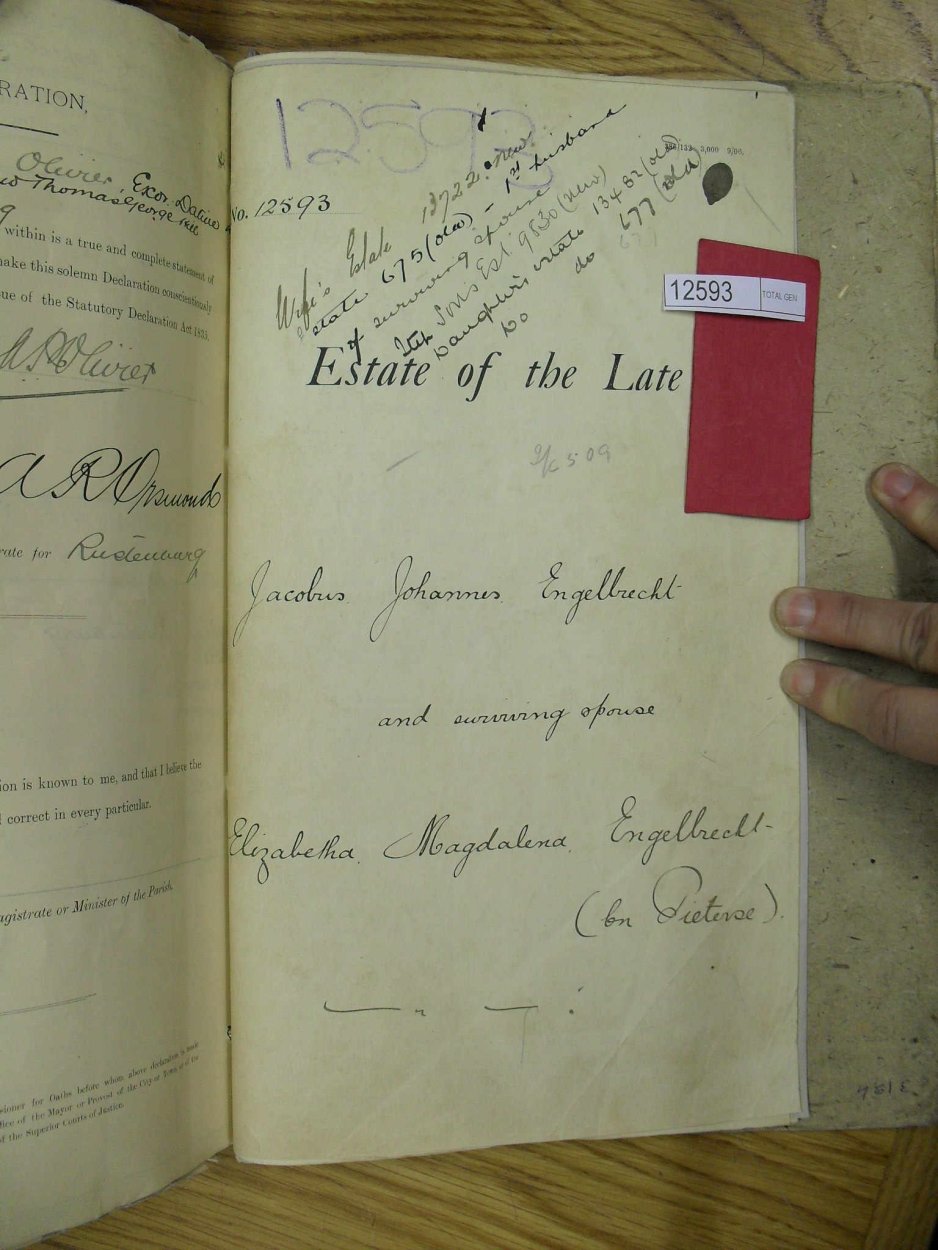 RATION,
Olivier, Exor. Dative
Thomas George
within is a true and complete statement of
make this solemn Declaration conscientiously
ue of the Statutory Declaration Act 1835.
A R Olivier
A R Ormonds
rate for Rustenburg
ion is known to me, and that I believe the
correct in every particular.
agistrate or Minister of the Parish.
sioner for Oaths before whom above declaration is made
ffice of the Mayor or Provost of the City or Town
of the Superior Courts of Justice.
12593
3,000 9/06.
No. 12593
Wife's Estate 13722 new
estate 675 (old) - 1st husband
of surviving spouse
Step Sons Est. 9830 (new)
Daughter's estate 13482 (old)
Do do 677 (old)
12593 TOTAL GEN
Estate of the Late
509
Jacobus Johannes Engelbrecht
and surviving spouse
Elizabetha Magdalena Engelbrecht
(bn Pieterse).